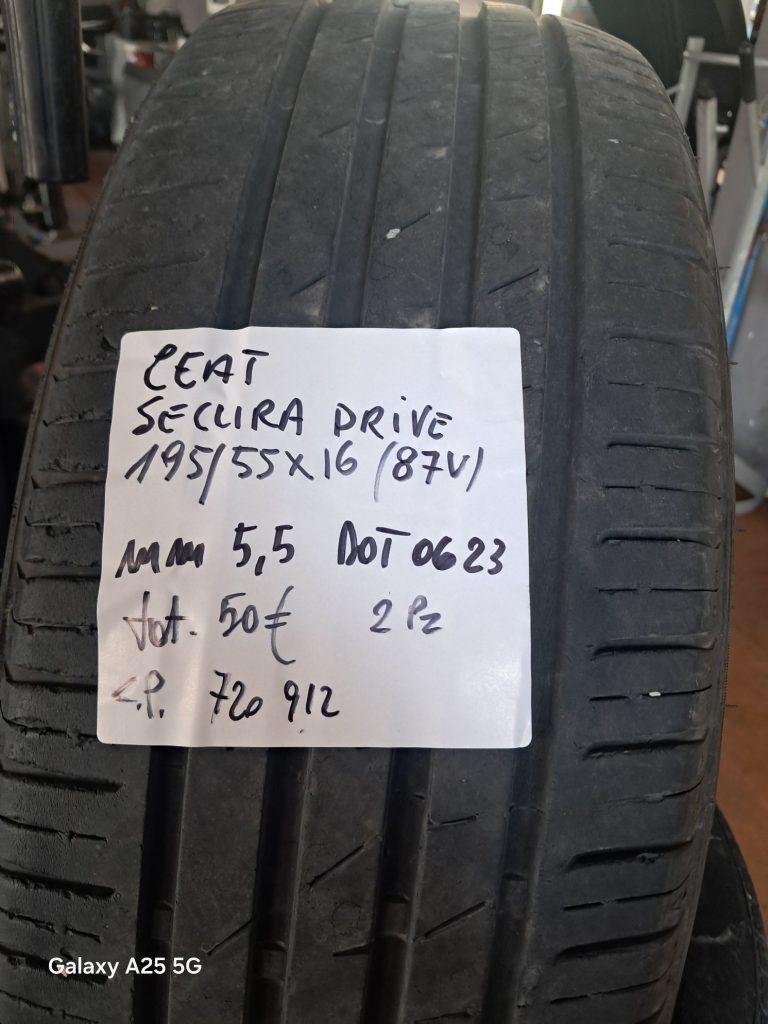 CEAT
SECURA DRIVE
195/55x16 (87V)
mm 5,5 DOT 0623
tot. 50€ 2 Pz
C.P. 720 912
Galaxy A25 5G